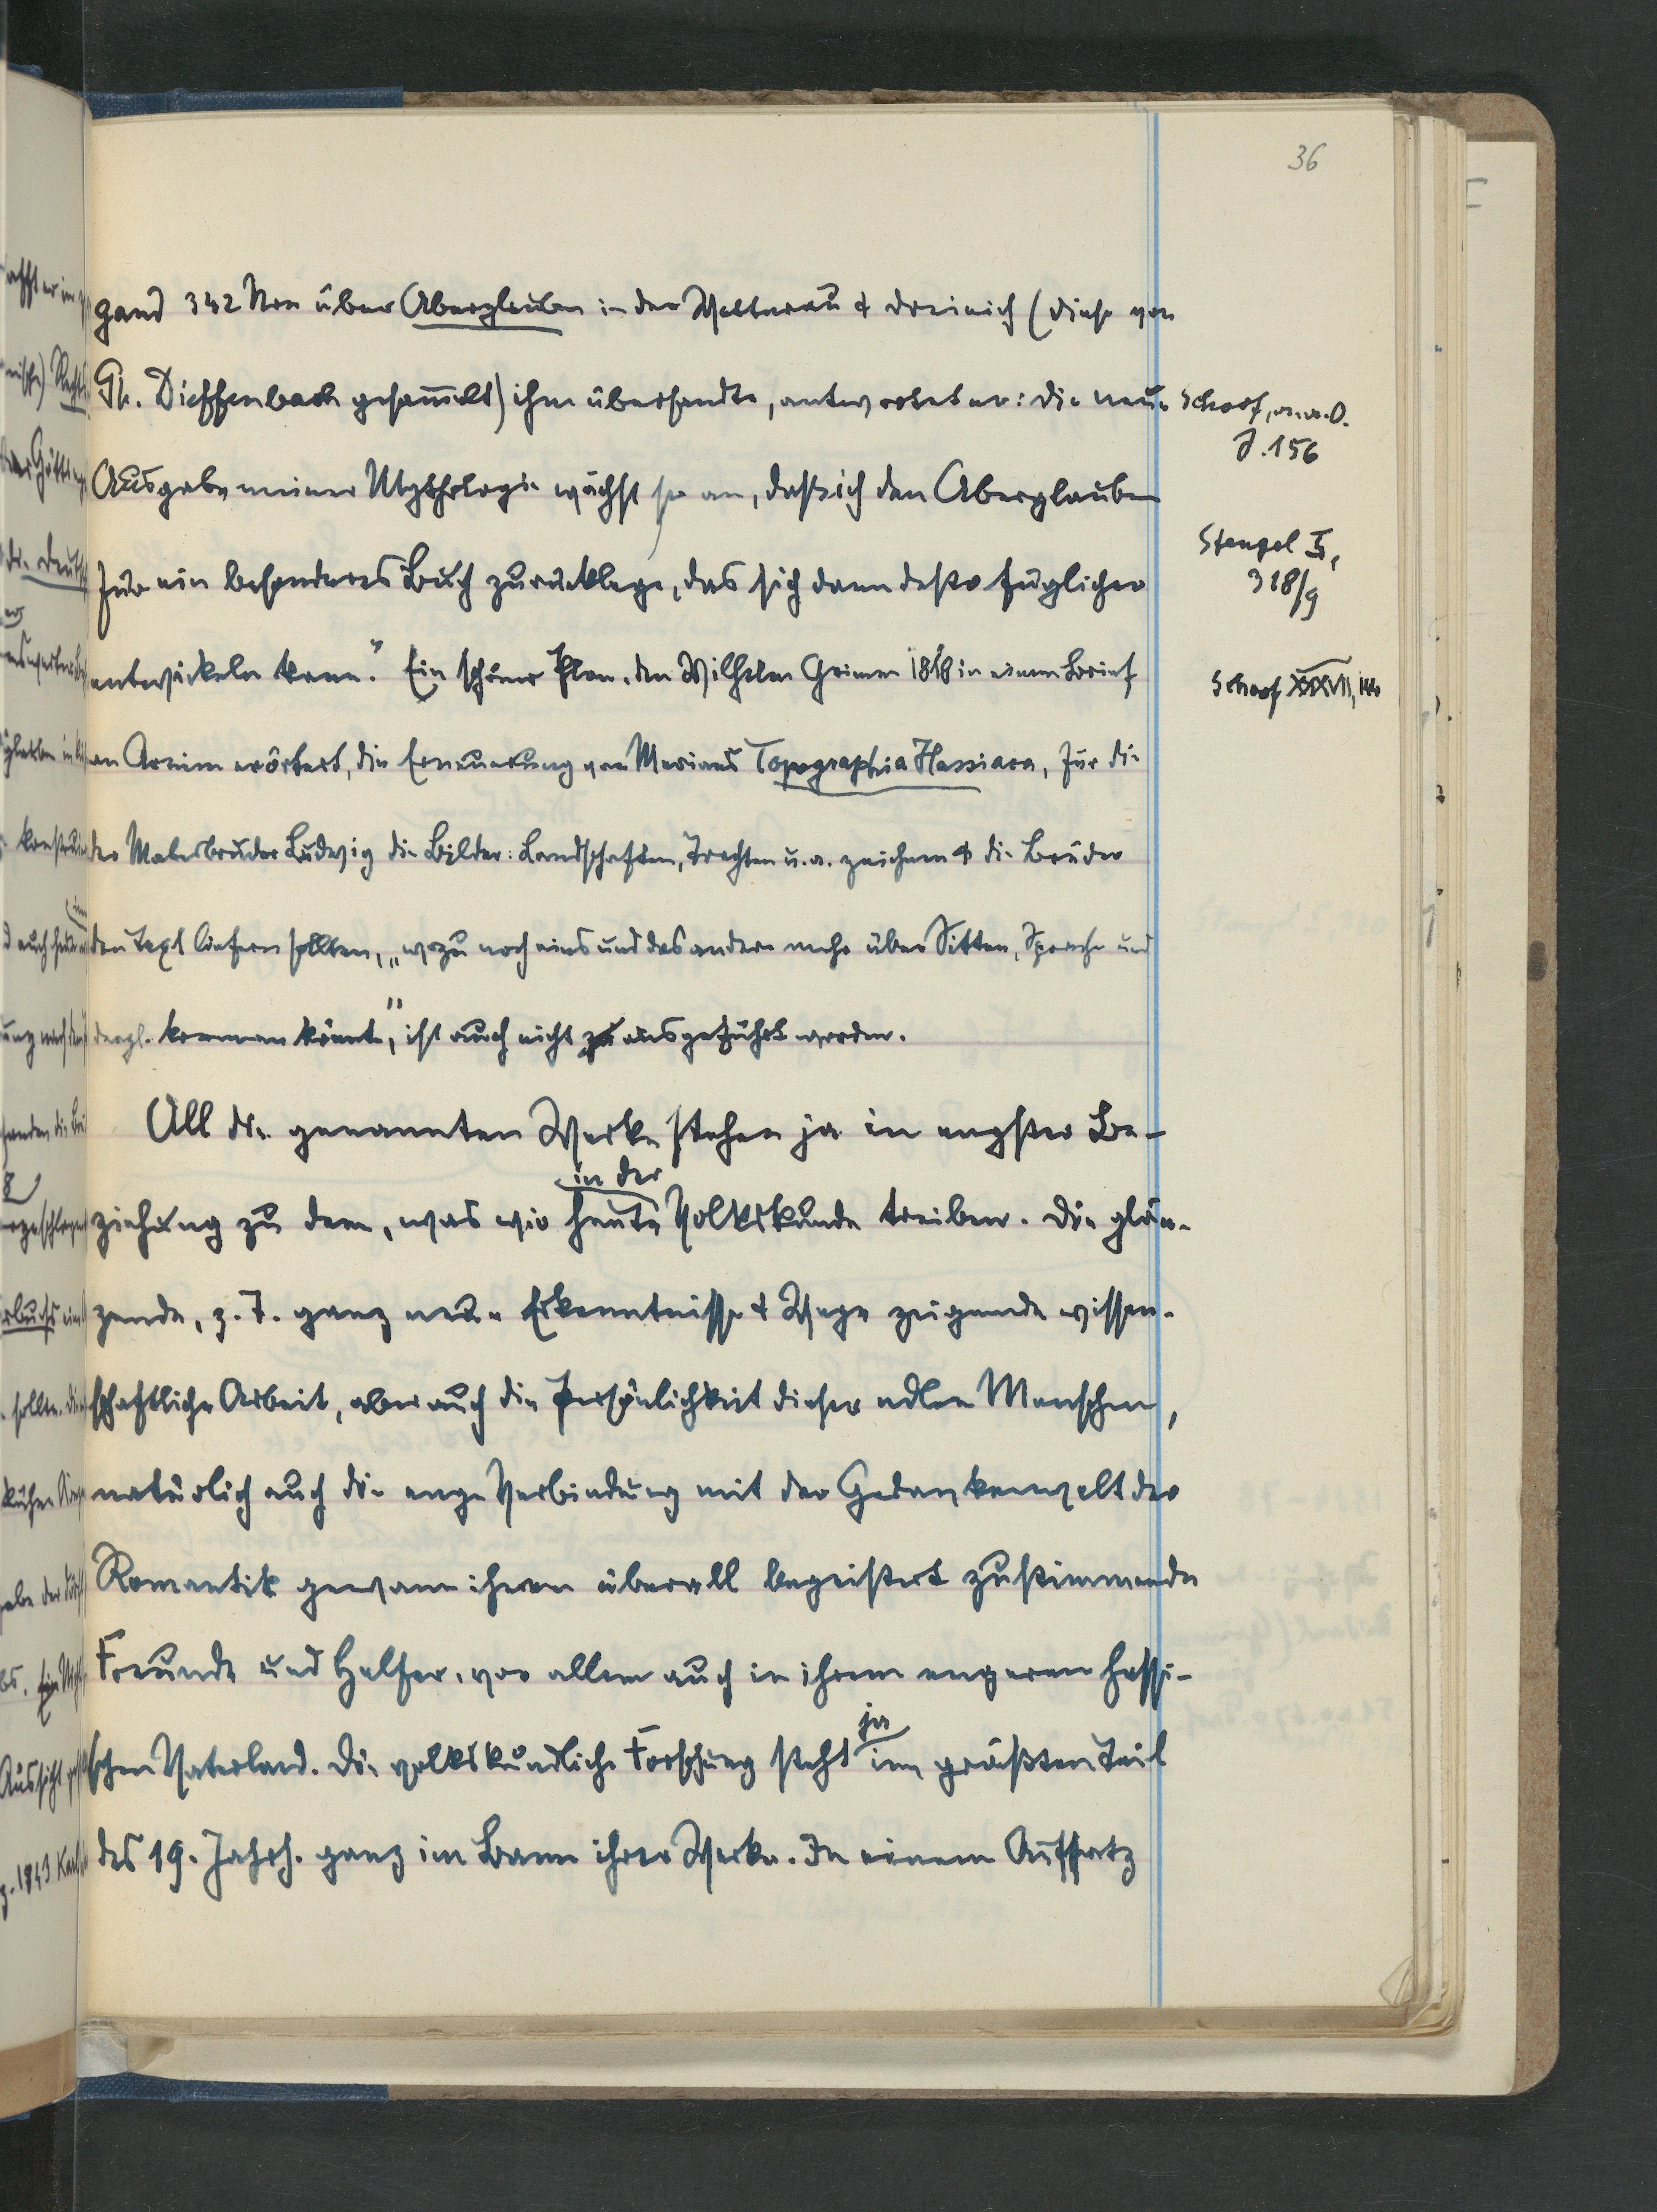 36
gand 342 Nrn über Aberglauben in der Wetterau & Dreieich (diese von
Ph. Dieffenbach gesammelt) ihm übersandte, antwortet er: die neue
Schoof, a.a.O.
S. 156
Ausgabe meiner Mythologie wächst so an, daß ich den Aberglauben
Stengel II,
318/9
für ein besonderes Buch zurücklege, das sich dann desto füglicher
entwickeln kann." Ein schöner Plan, den Wilhelm Grimm 1818 in einem Brief
Schoof XXXVII, 144
an Arnim erörtert, die Erneuerung von Merians Topographia Hassiaca, für die
der Malerbruder Ludwig die Bilder: Landschaften, Trachten u.a. zeichnen & die Brüder
den Text liefern sollten, „wozu noch eins und das andere mehr über Sitten, Sprache und
dergl. kommen könnte", ist auch nicht zu ausgeführt worden.
All die genannten Werke stehen ja in engster Be-
in der
ziehung zu dem, was wir heute Volkskunde treiben. Die glän-
zende, z. T. ganz neue Erkenntnisse & Wege zeigende wissen-
schaftliche Arbeit, aber auch die Persönlichkeit dieser edlen Menschen,
natürlich auch die enge Verbindung mit der Gedankenwelt der
Romantik gewann ihnen überall begeistert zustimmende
Freunde und Helfer, vor allem auch in ihrem engeren hessi-
ja
schen Vaterland. Die volkskundliche Forschung steht im größten Teil
des 19. Jahrh. ganz im Bann ihrer Werke. In einem Aufsatz